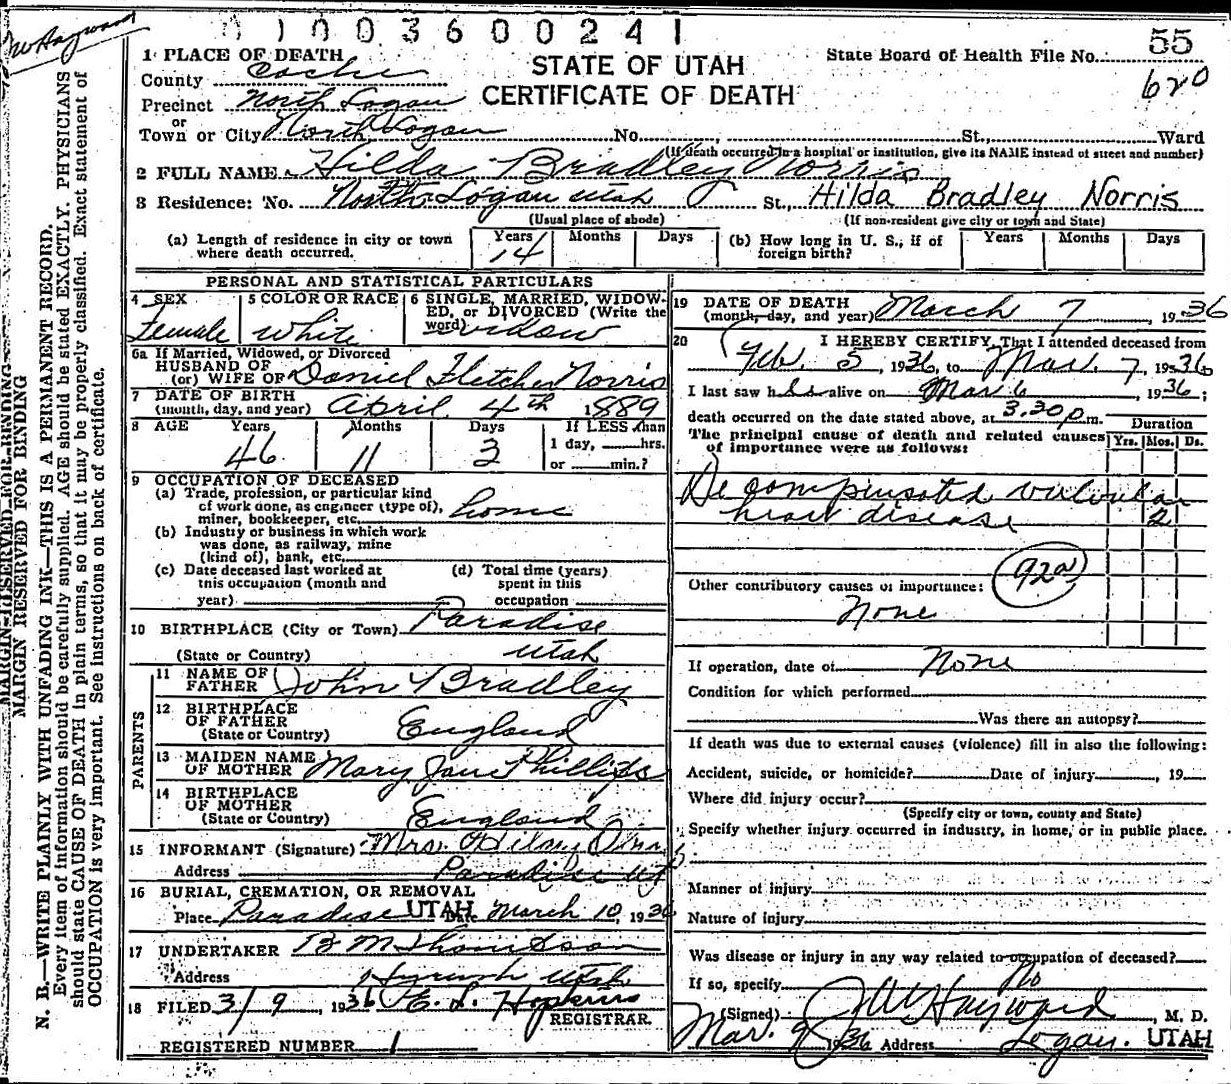 1003600241
W Hayward
55
620
1 PLACE OF DEATH
STATE OF UTAH
CERTIFICATE OF DEATH
State Board of Health File No.
County Cache
Precinct North Logan
or
Town or City North Logan No. St., Ward
(If death occurred in a hospital or institution, give its NAME instead of street and number)
2 FULL NAME Hilda Bradley Norris
3 Residence: No. North Logan Utah St., Hilda Bradley Norris
(Usual place of abode) (If non-resident give city or town and State)
(a) Length of residence in city or town where death occurred. Years 14 Months Days
(b) How long in U. S., if of foreign birth? Years Months Days
PERSONAL AND STATISTICAL PARTICULARS
4 SEX Female
5 COLOR OR RACE White
6 SINGLE, MARRIED, WIDOWED, or DIVORCED (Write the word) widow
6a If Married, Widowed, or Divorced
HUSBAND OF
(or) WIFE OF Daniel Fletcher Norris
7 DATE OF BIRTH
(month, day, and year) April 4th 1889
8 AGE Years 46 Months 11 Days 3 If LESS than 1 day, hrs. or min.?
9 OCCUPATION OF DECEASED
(a) Trade, profession, or particular kind of work done, as engineer (type of), miner, bookkeeper, etc. home
(b) Industry or business in which work was done, as railway, mine (kind of), bank, etc.
(c) Date deceased last worked at this occupation (month and year)
(d) Total time (years) spent in this occupation
10 BIRTHPLACE (City or Town) Paradise
(State or Country) Utah
PARENTS
11 NAME OF FATHER John Bradley
12 BIRTHPLACE OF FATHER
(State or Country) England
13 MAIDEN NAME OF MOTHER Mary Jane Phillips
14 BIRTHPLACE OF MOTHER
(State or Country) England
15 INFORMANT (Signature) Mrs.
Address Paradise Ut
16 BURIAL, CREMATION, OR REMOVAL
Place Paradise UTAH Date March 10, 1936
17 UNDERTAKER B M Thompson
Address Hyrum Utah
18 FILED 3/9, 1936 E. L. Hopkins
REGISTRAR.
REGISTERED NUMBER 1
19 DATE OF DEATH
(month, day, and year) March 7, 1936
20 I HEREBY CERTIFY, That I attended deceased from
Feb. 5, 1936, to Mar. 7, 1936
I last saw h alive on Mar 6, 1936;
death occurred on the date stated above, at 3.30 p m.
The principal cause of death and related causes of importance were as follows: Duration Yrs. Mos. Ds.
Decompensated valvular
heart disease 2
92a
Other contributory causes of importance:
None
If operation, date of None
Condition for which performed
Was there an autopsy?
If death was due to external causes (violence) fill in also the following:
Accident, suicide, or homicide? Date of injury , 19
Where did injury occur?
(Specify city or town, county and State)
Specify whether injury occurred in industry, in home, or in public place.
Manner of injury
Nature of injury
Was disease or injury in any way related to occupation of deceased?
If so, specify No
(Signed) J W Hayward, M. D.
Mar. 9 1936 Address Logan. UTAH
MARGIN RESERVED FOR BINDING
MARGIN RESERVED FOR BINDING
N. B.—WRITE PLAINLY WITH UNFADING INK—THIS IS A PERMANENT RECORD.
Every item of information should be carefully supplied. AGE should be stated EXACTLY. PHYSICIANS
should state CAUSE OF DEATH in plain terms, so that it may be properly classified. Exact statement of
OCCUPATION is very important. See instructions on back of certificate.